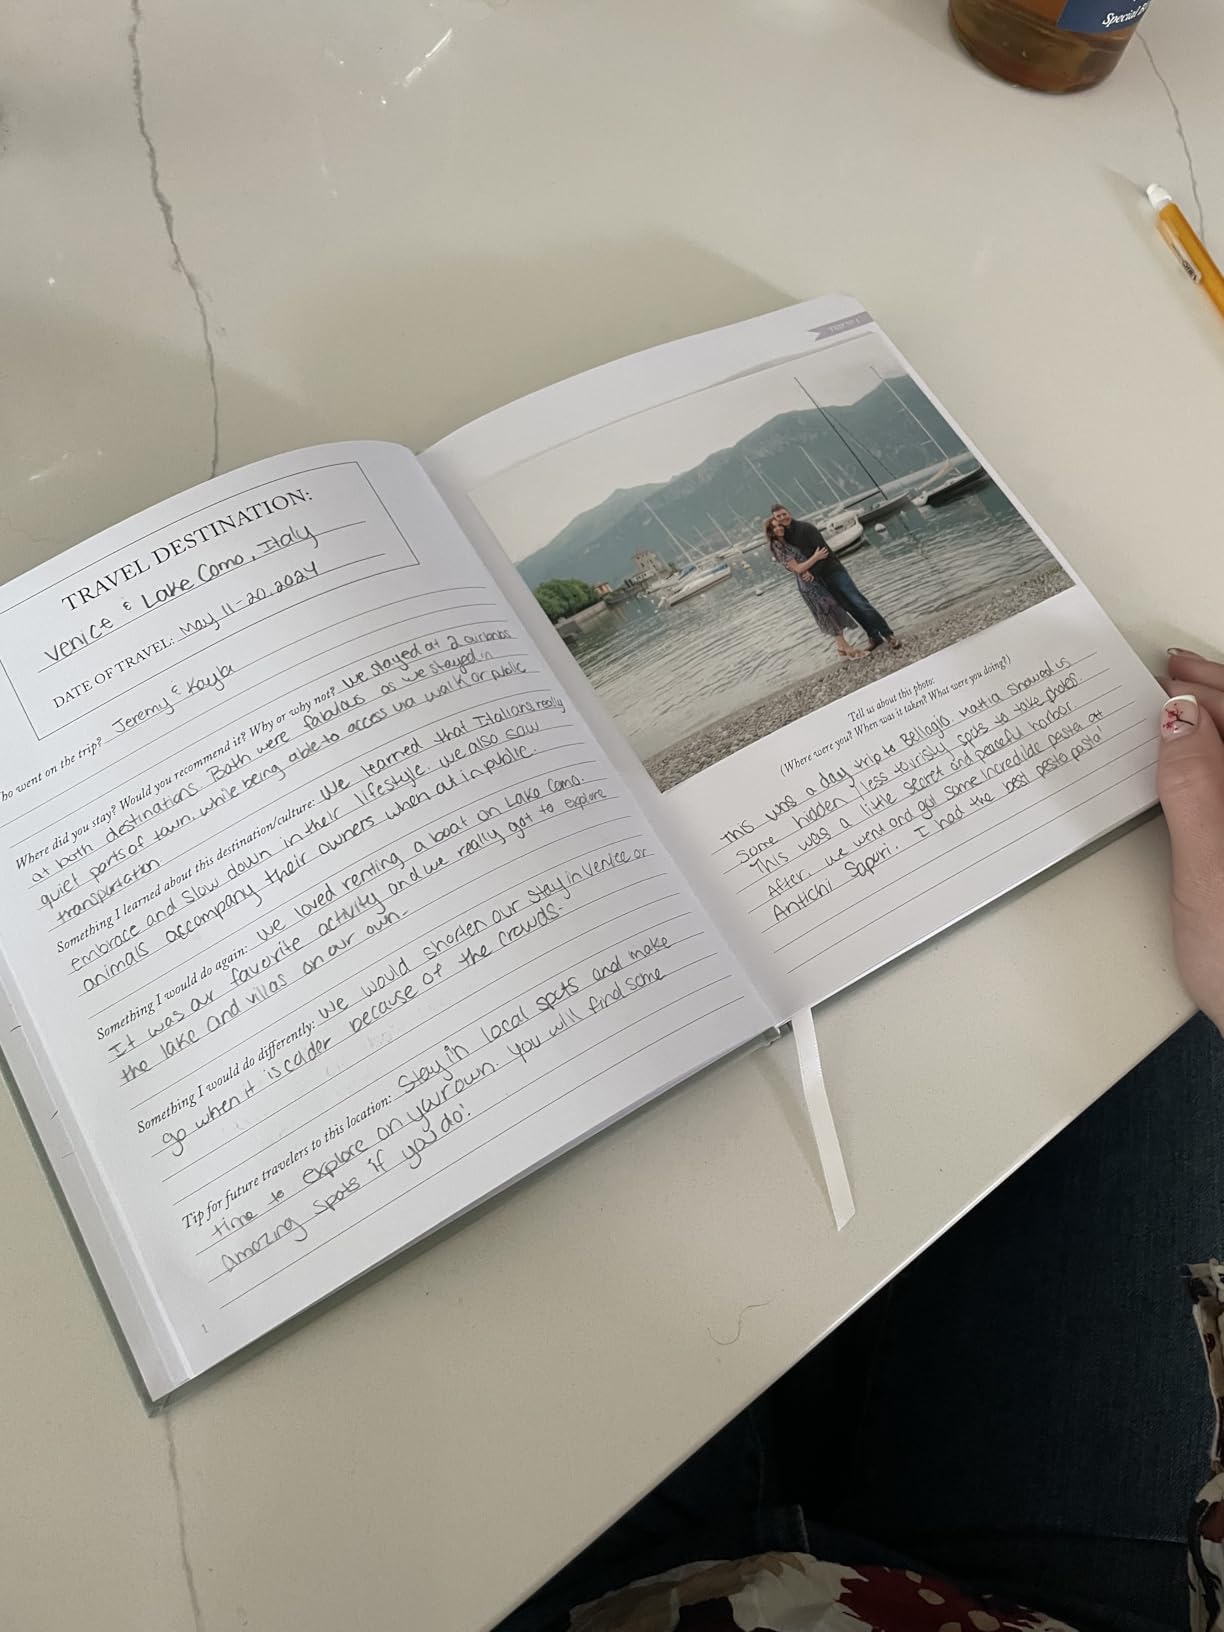 TRAVEL DESTINATION:
Venice & Lake Como, Italy
DATE OF TRAVEL: May 11-20, 2024
ho went on the trip? Jeremy & Kayla
Where did you stay? Would you recommend it? Why or why not? We stayed at 2 airbnbs
at both destinations. Both were fabulous as we stayed in
quiet parts of town, while being able to access via walk or public
transportation
Something I learned about this destination/culture: We learned that Italians really
embrace and slow down in their lifestyle. We also saw
animals accompany their owners when out in public.
Something I would do again: We loved renting a boat on Lake Como.
It was our favorite activity and we really got to explore
the lake and villas on our own.
Something I would do differently: We would shorten our stay in Venice or
go when it is colder because of the crowds.
Tip for future travelers to this location: Stay in local spots and make
time to explore on your own. You will find some
amazing spots if you do!
1
TRIP Nº 1
Tell us about this photo:
(Where were you? When was it taken? What were you doing?)
This was a day trip to Bellagio. Mattia showed us
some hidden / less touristy spots to take photos.
This was a little secret and peaceful harbor.
After, we went and got some incredible pasta at
Antichi Sapori. I had the best pesto pasta!
Special